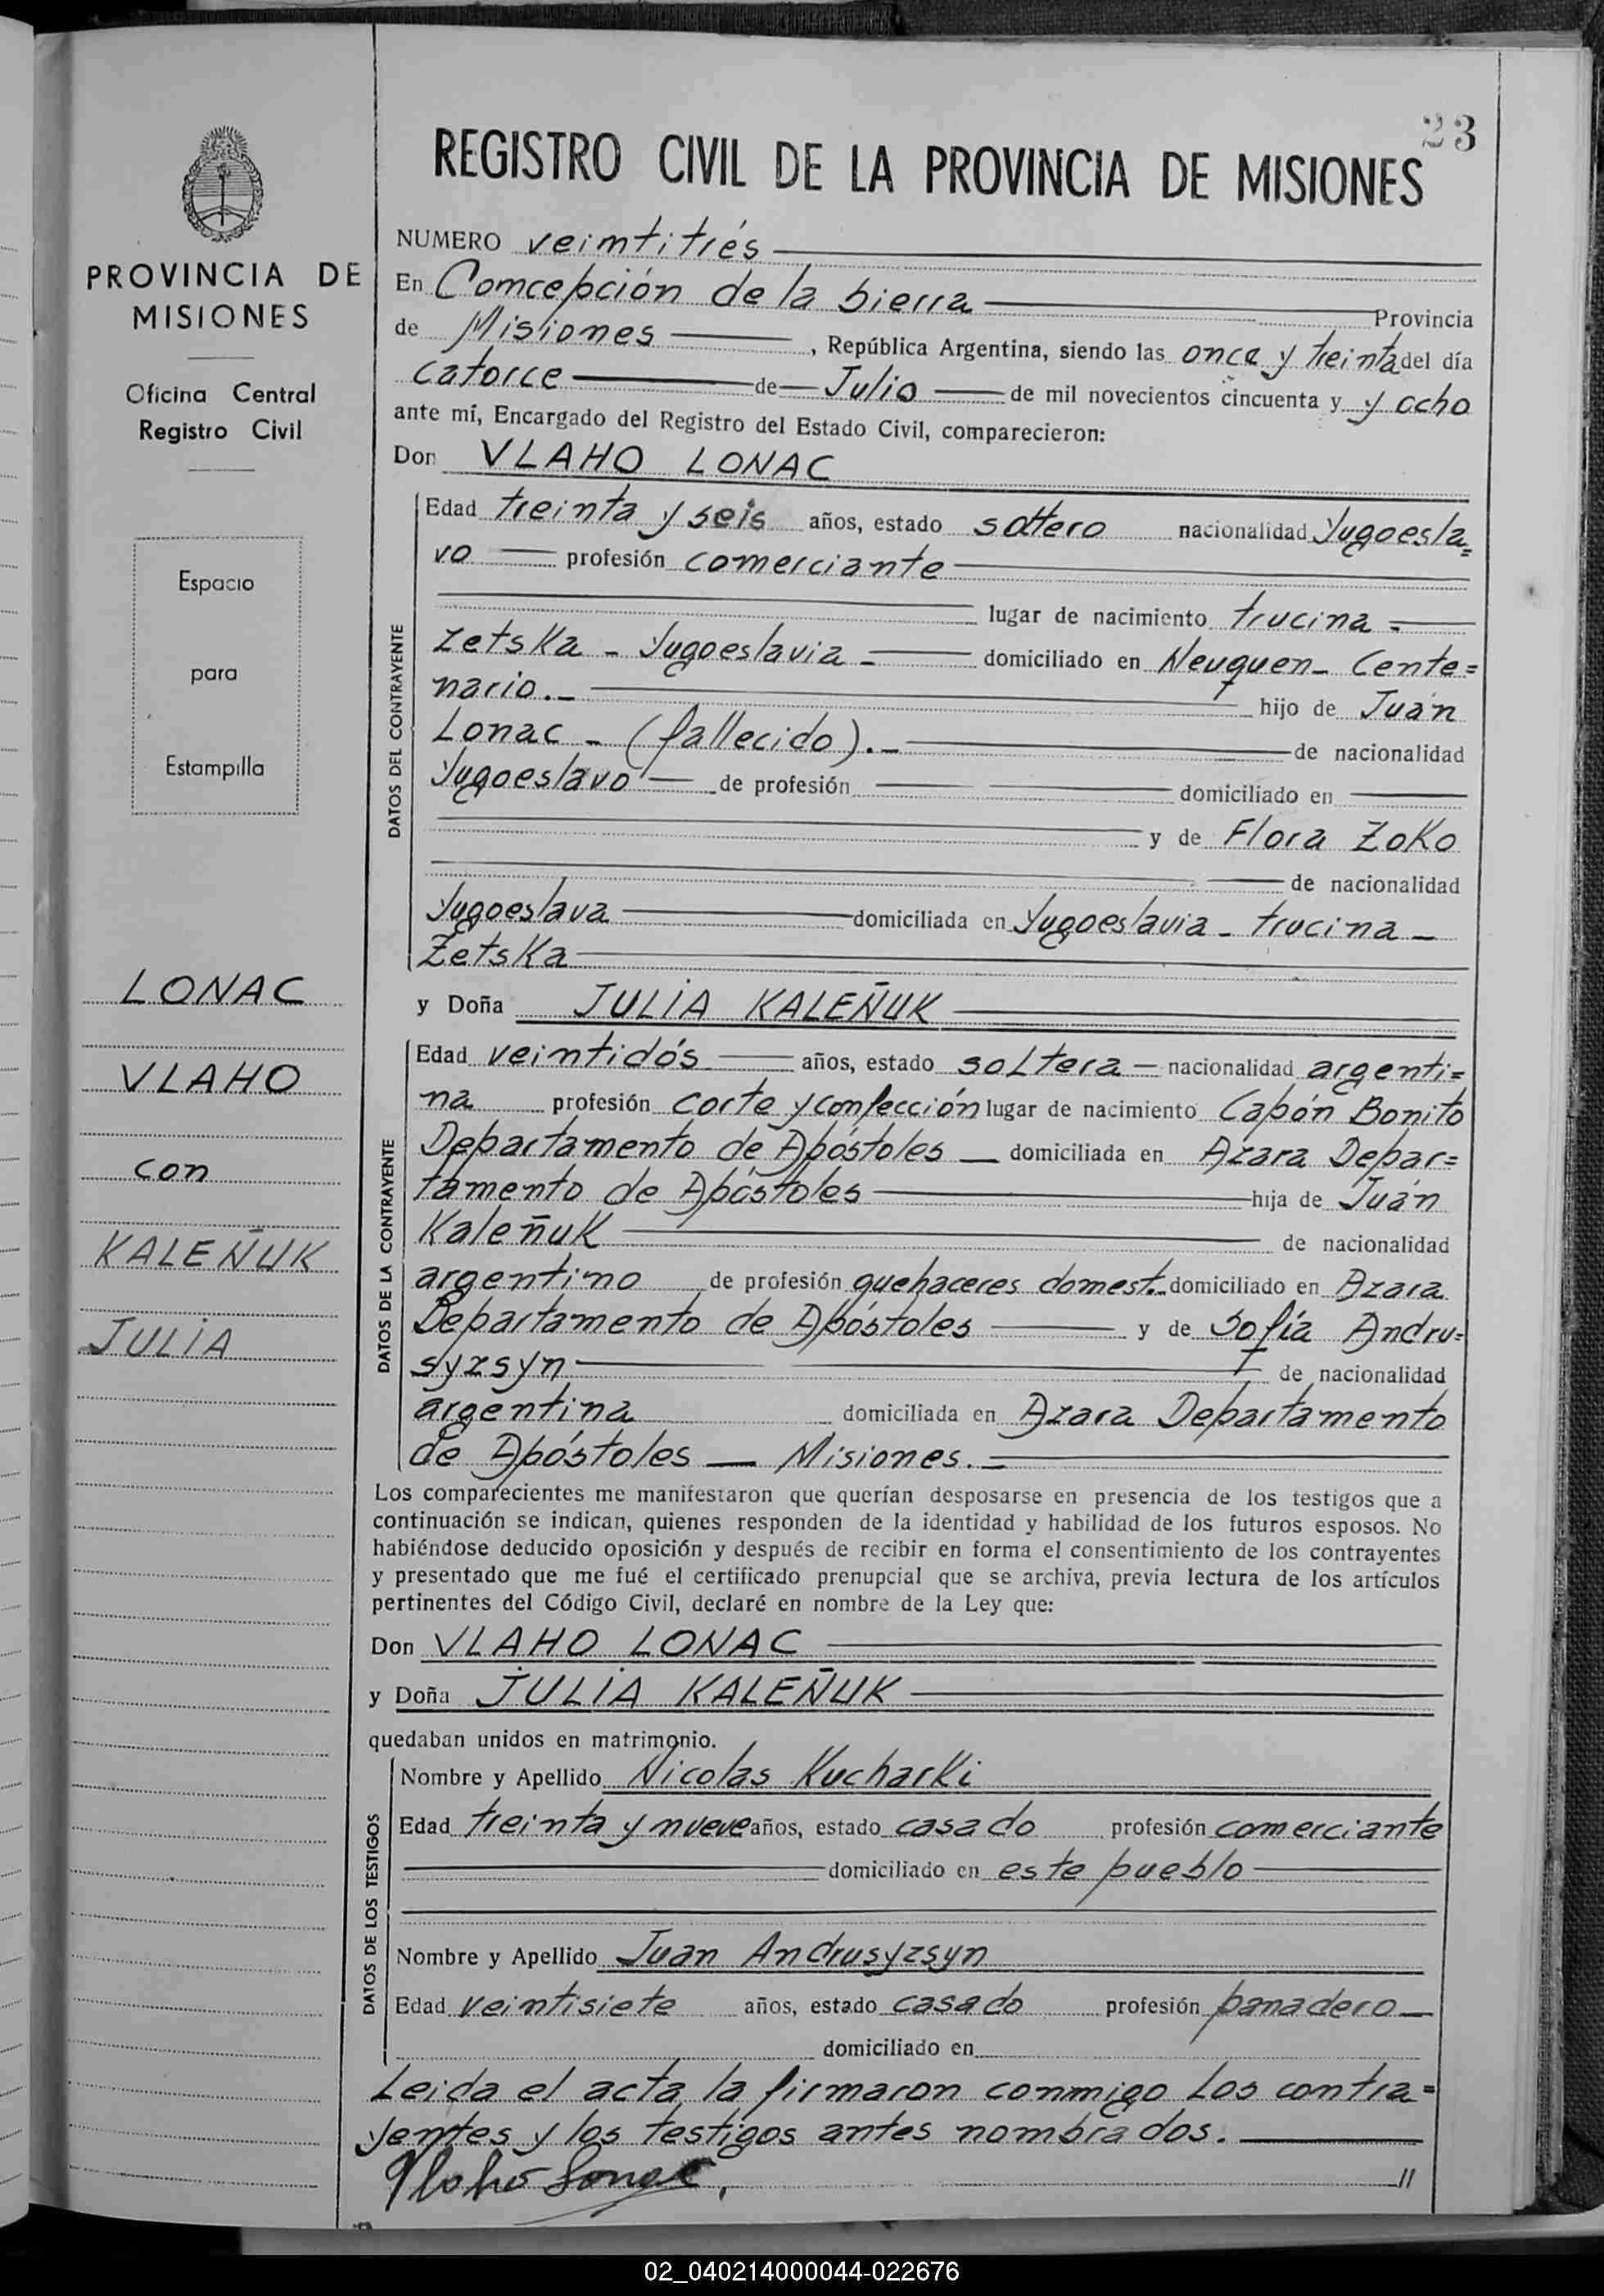 23
REGISTRO CIVIL DE LA PROVINCIA DE MISIONES
PROVINCIA DE
MISIONES
Oficina Central
Registro Civil
Espacio
para
Estampilla
LONAC
VLAHO
con
KALEÑUK
JULIA
NUMERO veimtitrés
En Comcepción de la Sierra Provincia
de Misiones, República Argentina, siendo las once y treinta del día
catorce de Julio de mil novecientos cincuenta y y ocho
ante mí, Encargado del Registro del Estado Civil, comparecieron:
Don VLAHO LONAC
DATOS DEL CONTRAYENTE
Edad treinta y seis años, estado soltero nacionalidad Yugoesla=
vo profesión comerciante
lugar de nacimiento trucina -
zetska - Yugoeslavia - domiciliado en Neuquen - Cente=
nario.- hijo de Juán
Lonac - (fallecido).- de nacionalidad
Yugoeslavo de profesión domiciliado en
y de Flora Zoko
de nacionalidad
Yugoeslava domiciliada en Yugoeslavia - trucina -
Zetska
y Doña JULIA KALEÑUK
DATOS DE LA CONTRAYENTE
Edad veintidós años, estado soltera - nacionalidad argenti=
na profesión corte y confección lugar de nacimiento Capón Bonito
Departamento de Apóstoles - domiciliada en Azara Depar=
tamento de Apóstoles hija de Juán
Kaleñuk de nacionalidad
argentino de profesión quehaceres domest. domiciliado en Azara
Departamento de Apóstoles y de Sofía Andru=
syzsyn de nacionalidad
argentina domiciliada en Azara Departamento
de Apóstoles - Misiones.-
Los comparecientes me manifestaron que querían desposarse en presencia de los testigos que a
continuación se indican, quienes responden de la identidad y habilidad de los futuros esposos. No
habiéndose deducido oposición y después de recibir en forma el consentimiento de los contrayentes
y presentado que me fué el certificado prenupcial que se archiva, previa lectura de los artículos
pertinentes del Código Civil, declaré en nombre de la Ley que:
Don VLAHO LONAC
y Doña JULIA KALEÑUK
quedaban unidos en matrimonio.
DATOS DE LOS TESTIGOS
Nombre y Apellido Nicolas Kucharki
Edad treinta y nueve años, estado casado profesión comerciante
domiciliado en este pueblo
Nombre y Apellido Juan Andrusyzsyn
Edad veintisiete años, estado casado profesión panadero
domiciliado en
Leida el acta la firmaron conmigo los contra=
yentes y los testigos antes nombrados.
Vlaho Lonac, //
02_040214000044-022676